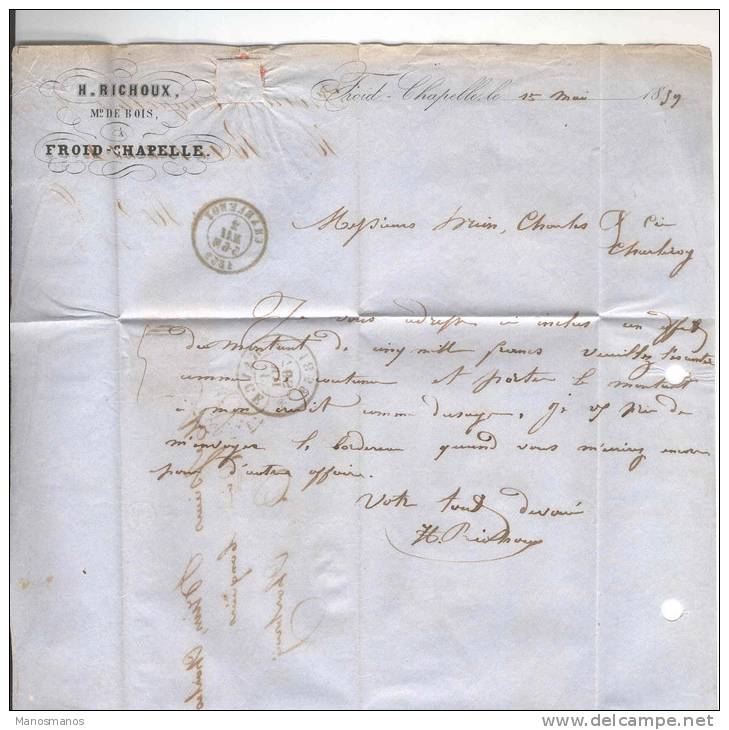 H. RICHOUX,
Md. DE BOIS,
A
FROID-CHAPELLE.
Froid-Chapelle, le 15 mai 1859
Messieurs Charles & Cie
Charleroy
Je vous adresse ci inclus un effet
du montant de cinq mille francs veuillez l'escompter
comme de coutume et porter le montant
à mon crédit comme d'usage, je vs prie de
m'envoyer le bordereau quand vous m'écrirez encore
pour d'autre affaire.
Votre tout dévoué
H. Richoux
Manosmanos
delcampe.net